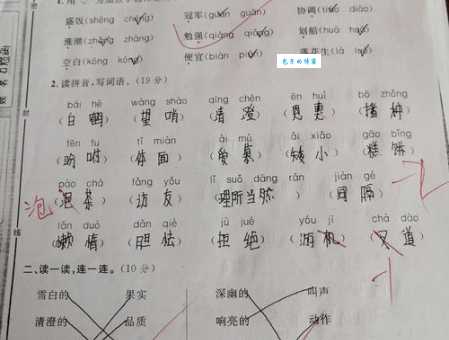 盛饭(shèng chéng) 冠军(guān guàn) 协调(tiáo diào)
涨潮(zhǎng zhàng) 勉强(qiáng qiǎng) 划船(huá huà)
空白(kōng kòng) 便宜(biàn pián) 落花生(là luò)
包子的棉窗
2.读拼音,写词语。(19分)
bái hè wàng shào qīng chén ēn huì bō zhǒng
(白鹤) (望哨) (清澄) (恩惠) (播种)
fēn fu tǐ miàn ài mù ǎi xiǎo gāo bǐng
(吩咐) (体面) (爱慕) (矮小) (糕饼)
pào chá fǎng yǒu lǐ suǒ dāng rán jiàn gé
泡 (茶) (访友) (理所当然) (间隔) -2
lǎn duò dǎn qiè jù jué yóu jī chà dào
(懒惰) (胆怯) (拒绝) (游机) (叉道)
-1
二、读一读,连一连。(10分)
雪白的 果实 深幽的 叫声
清澄的 品质 响亮的 动作